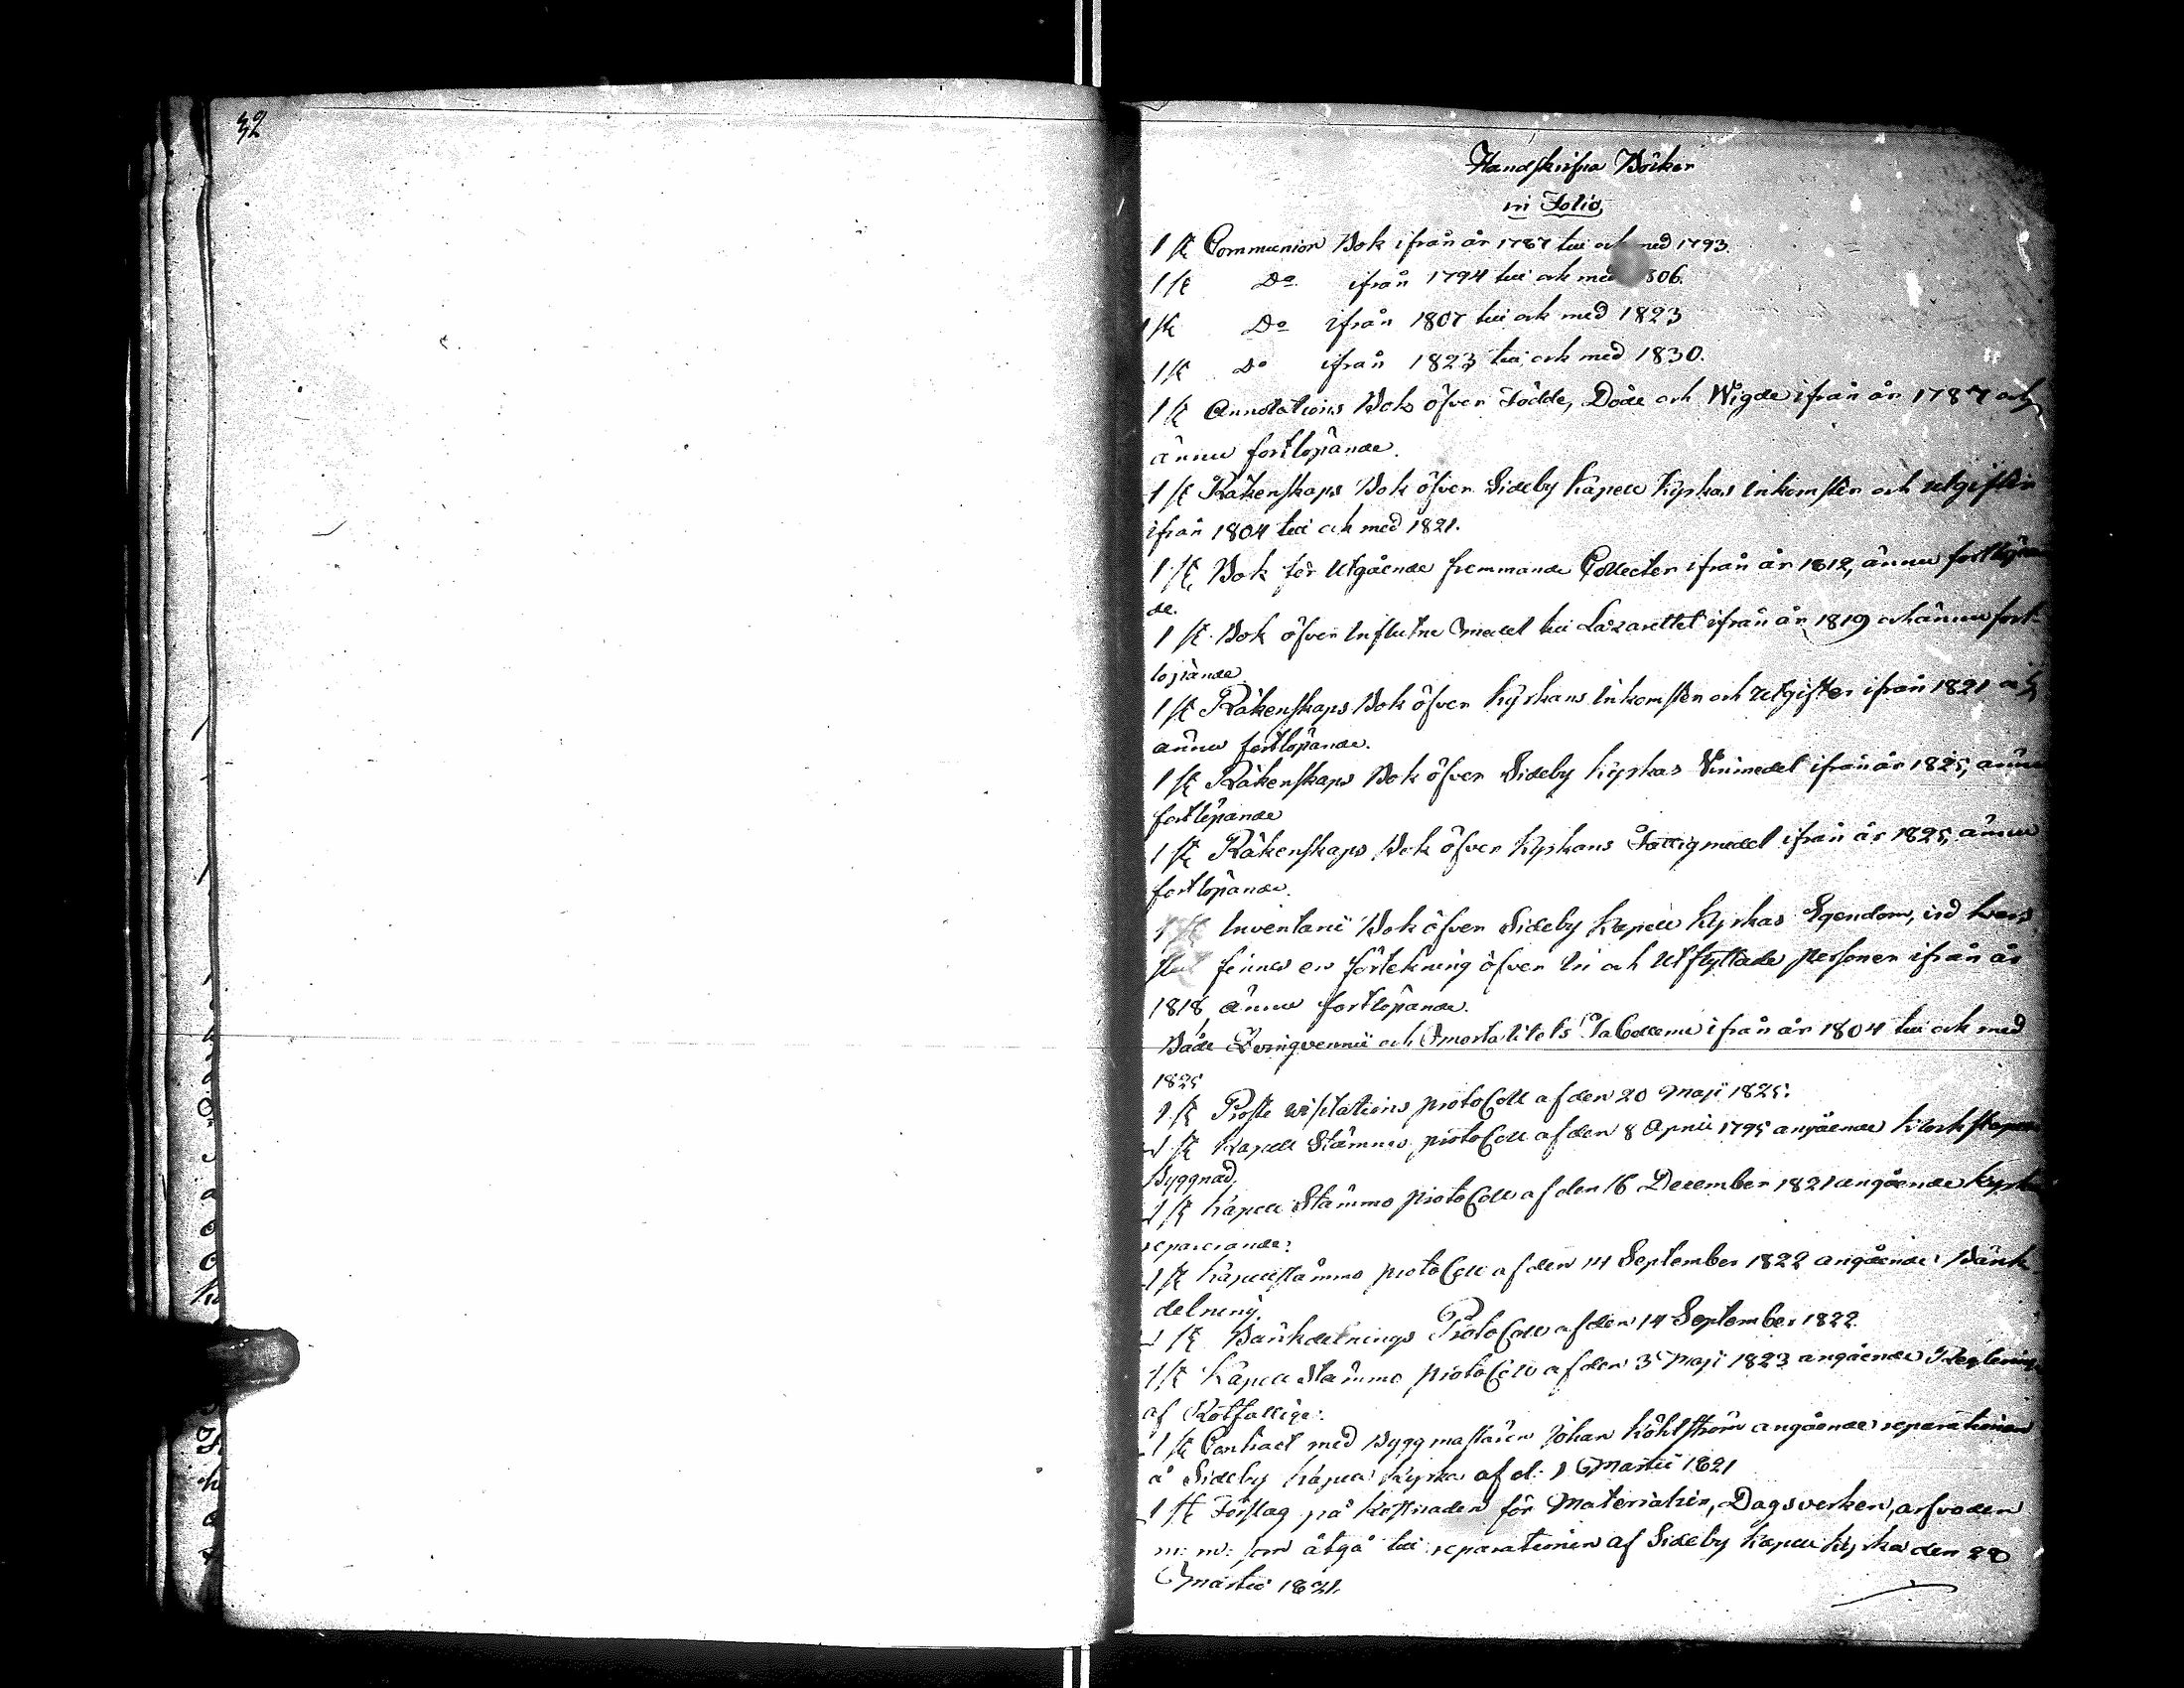 32
Handskrifna Böcker
in Folio
1 st Communion Bok ifrån år 1787 till och med 1793.
1 st Do ifrån 1794 till och med 1806.
1 st Do ifrån 1807 till och med 1823
1 st Do ifrån 1823 till och med 1830.
1 st Annotations Bok öfver Födde, Döde och Wigde ifrån år 1787 och
ännu fortlöpande.
1 st Räkenskaps Bok öfver Sideby Kapell Kyrkas Inkomster och utgifter
ifrån 1804 till och med 1821.
1 st Bok för Utgående fremmande Collecter ifrån år 1812, ännu fortlöpan
de.
1 st Bok öfver Influtne medel till Lazarettet ifrån år 1819 och ännu fort-
löpande
1 st Räkenskaps Bok öfver Kyrkans Inkomster och Utgifter ifrån 1821 och
ännu fortlöpande.
1 st Räkenskaps Bok öfver Sideby Kyrkas Vinmedel ifrån år 1825, ännu
fortlöpande
1 st Räkenskaps Bok öfver Kyrkans Fattigmedel ifrån år 1825, ännu
fortlöpande.
1 st Inventarii Bok öfver Sideby Kapell Kyrkas Egendom, vid hvars
slut finnes en förtekning öfver In och Utflyttade personer ifrån år
1818, ännu fortlöpande.
Både Qvinqvennii och Mortalitets Tabellerne ifrån år 1804 till och med
1825
1 st Proste visitations protocoll af den 20 Maji 1825.
1 st Kapell Stämmo protocoll af den 8 April 1795 angående Klockstapels
Byggnad.
1 st Kapell Stämmo protocoll af den 16 December 1821 angående Kyrkans
reparerande.
1 st Kapellstämmo protocoll af den 14 September 1822 angående Bänk-
delning.
1 st Bänkdelnings Protocoll af den 14 September 1822.
1 st Kapell Stämmo protocoll af den 3 Maji 1823 angående
af Rotfattige.
1 st Contract med Byggmästaren Johan Kåhlström angående reparationen
å Sideby Kapell Kyrka af d: 1 Martii 1821
1 st Förslag på kostnaden för Materialier, Dagsverken, arfvoden
m: m: som åtgå till reparationen af Sideby Kapell Kyrka den 28
Martii 1821.